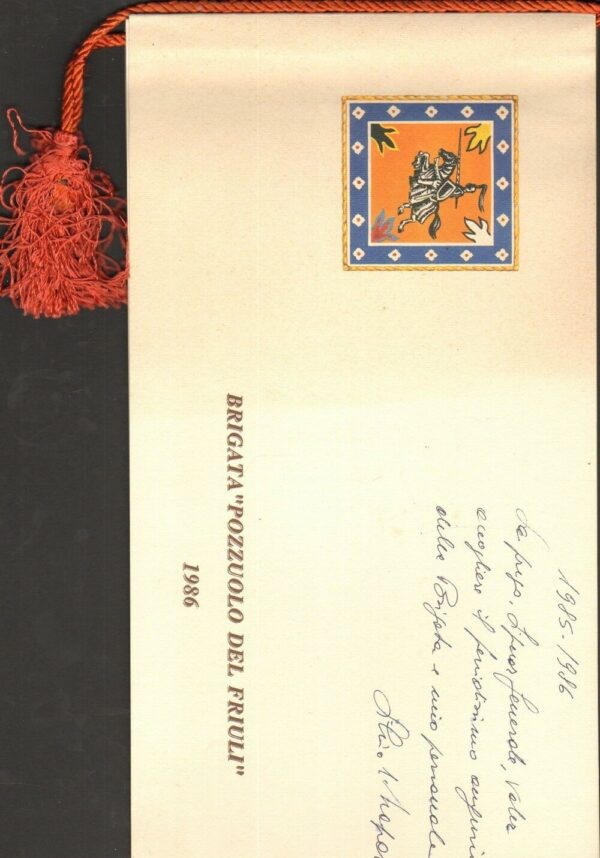 1985-1986
La prego, Signor Generale, voler
accogliere il fervidissimo
della Brigata e mio personale
BRIGATA "POZZUOLO DEL FRIULI"
1986